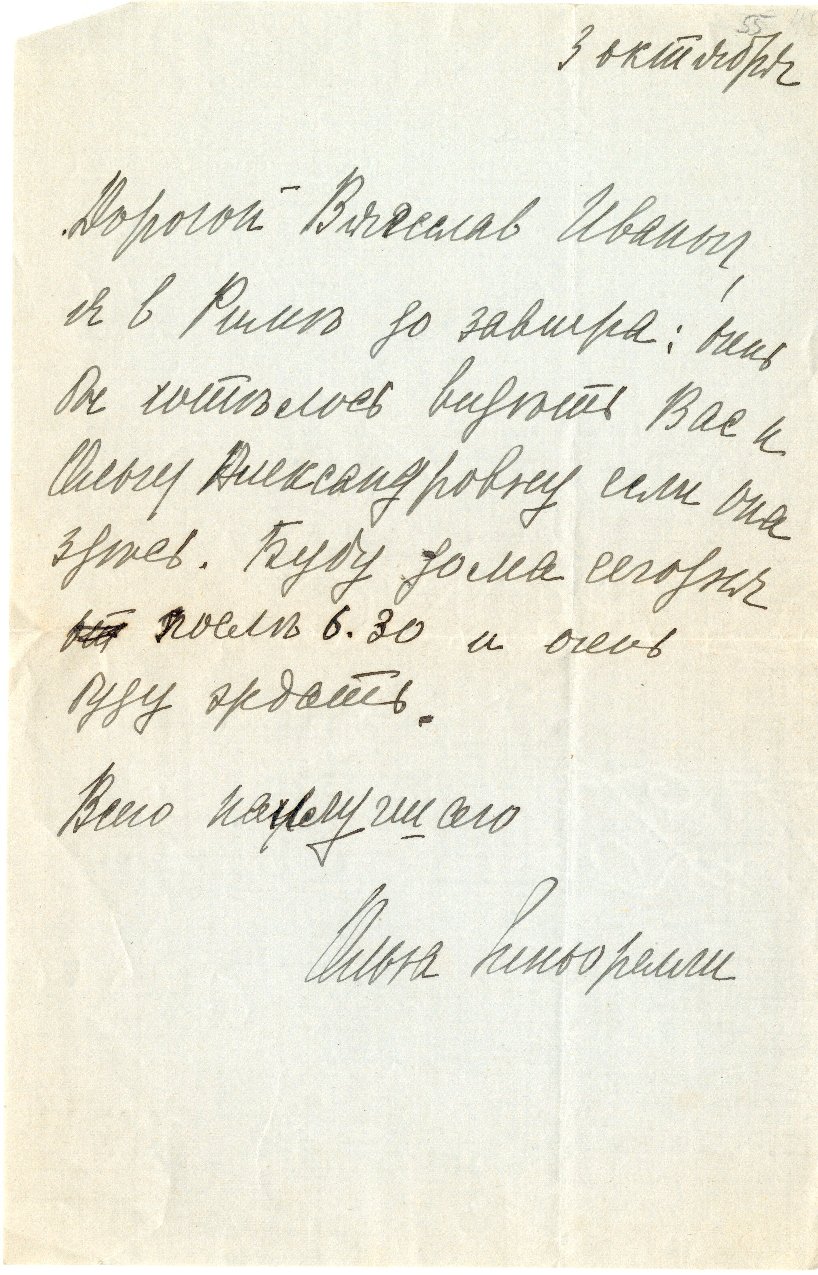 55
3 октября
Дорогой Вячеслав Иваныч,
я в Римѣ до завтра: очень
бы хотѣлось видѣть Вас и
Ольгу Александровну если она
здѣсь. Буду дома сегодня
послѣ 6.30 и очень
буду ждать.
Всего наилучшаго
Ольга Синьорелли